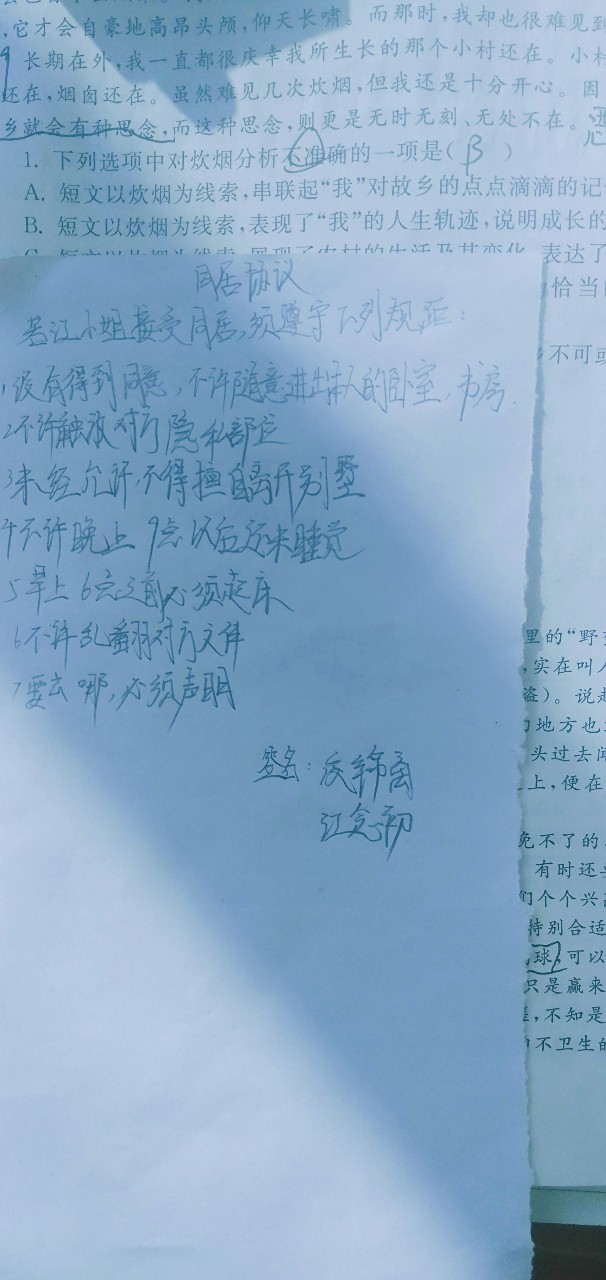 ,它才会自豪地高昂头颅,仰天长啸。而那时,我却也很难见到
长期在外,我一直都很庆幸我所生长的那个小村还在。小村
还在,烟囱还在。虽然难见几次炊烟,但我还是十分开心。因
乡就会有种思念,而这种思念,则更是无时无刻、无处不在。
1. 下列选项中对炊烟分析不准确的一项是( B )
A. 短文以炊烟为线索,串联起“我”对故乡的点点滴滴的记
B. 短文以炊烟为线索,表现了“我”的人生轨迹,说明成长的
表达了
恰当
不可或
同居协议
若江小姐接受同居,须遵守下列规矩:
1,没有得到同意,不许随意进出本人的卧室,书房.
2不许触碰对方隐私部位
3未经允许,不得擅自离开别墅
4不许晚上9点以后还未睡觉
5早上6点之前必须起床
6不许乱翻对方文件
7要去哪,必须声明
签名:
江念初
里的“野
,实在叫人
盗)。说
地方也
头过去闻
上,便在
免不了的
有时还
们个个兴
特别合适
球,可以
只是赢来
,不知是
不卫生的